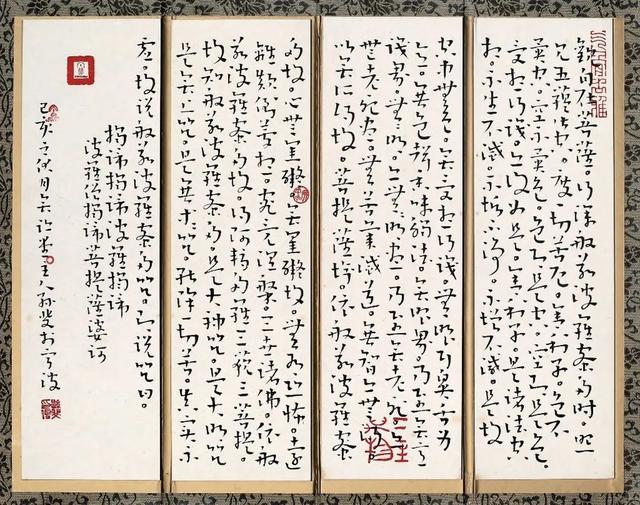 觀自在菩薩。行深般若波羅蜜多時。照
見五蘊皆空。度一切苦厄。舍利子。色不
異空。空不異色。色即是空。空即是色。
受想行識。亦復如是。舍利子。是諸法空
相。不生不滅。不垢不淨。不增不減。是故
空中無色。無受想行識。無眼耳鼻舌身
意。無色聲香味觸法。無眼界。乃至無意
識界。無無明。亦無無明盡。乃至無老死。亦
無老死盡。無苦集滅道。無智亦無得。
以無所得故。菩提薩埵。依般若波羅蜜
多故。心無罣礙。無罣礙故。無有恐怖。遠
離顛倒夢想。究竟涅槃。三世諸佛。依般
若波羅蜜多故。得阿耨多羅三藐三菩提。
故知般若波羅蜜多。是大神咒。是大明咒
是無上咒。是無等等咒。能除一切苦。真實不
虛。故說般若波羅蜜多咒。即說咒曰。
揭諦揭諦波羅揭諦
波羅僧揭諦菩提薩婆訶
己亥